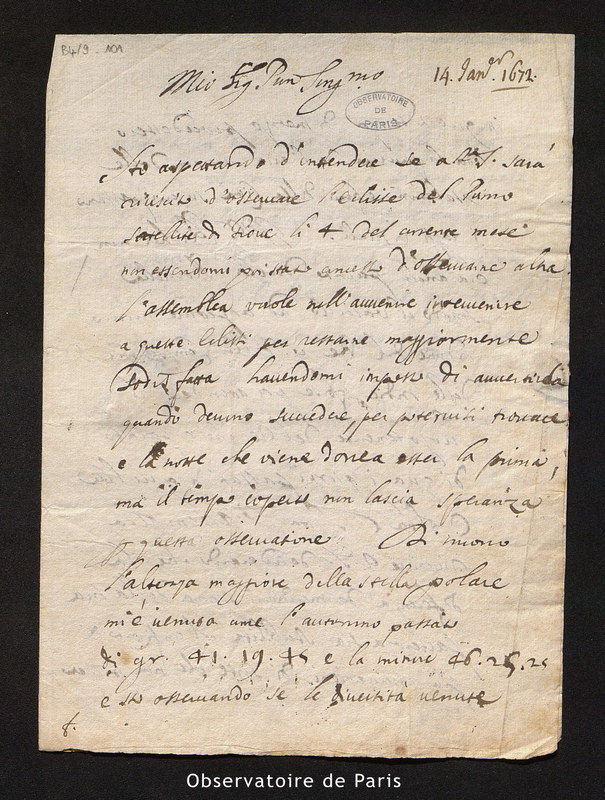 B4/9 - 101
Mio Sig.r
14. Jan.er 1672.
OBSERVATOIRE
DE
PARIS
Sto aspettando d'intendere se a sarà
riuscito d'osservare l'eclisse del Primo
satellite di Giove li 4 del corrente mese
non essendomi d'osservarne altra
l'assemblea vuole nell'avvenire intervenire
a queste eclissi per restarne maggiormente
sodisfatta havendomi imposto di avvertirla
quando devino succedere, per potervisi trovare
e la notte che viene dovea esser la prima,
ma il tempo coperto non lascia speranza
questa osservatione. Di nuovo
l'altezza maggiore della stella polare
mi è venuta come l'autunno passato
di gr. 41. 19. e la minore 46. 25. 25
e sto osservando se le diversità venute
Observatoire de Paris